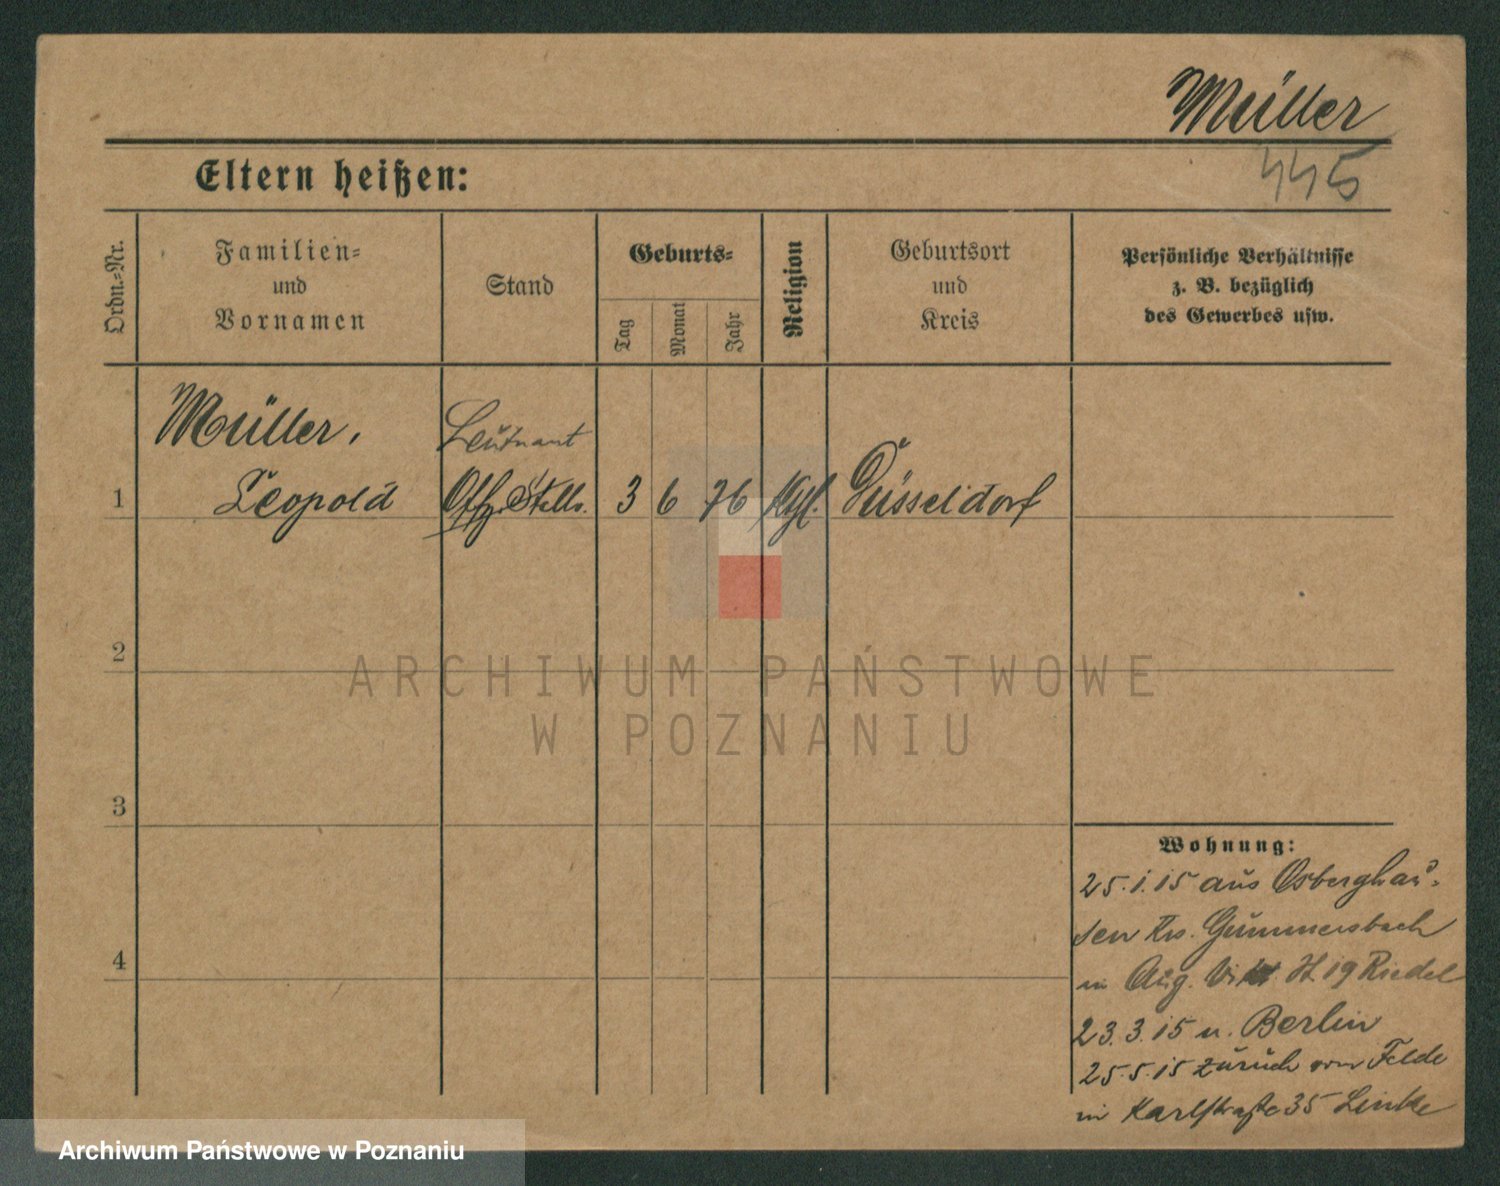 Müller
445
Eltern heißen:
Ordn.-Nr.
Familien-
und
Vornamen
Stand
Geburts-
Tag
Monat
Jahr
Religion
Geburtsort
und
Kreis
Persönliche Verhältnisse
z. B. bezüglich
des Gewerbes usw.
Müller,
Leutnant
1 Leopold Offz. Stellv. 3 6 76 Düsseldorf
2
ARCHIWUM PAŃSTWOWE
W POZNANIU
3
Wohnung:
25.1.15 aus Osberghau-
sen Krs. Gummersbach
in Aug. Vikt. St. 19 Riedel
23.3.15 n. Berlin
4
25.5.15 zurück vom Felde
in Karlstraße 35 Linke
Archiwum Państwowe w Poznaniu